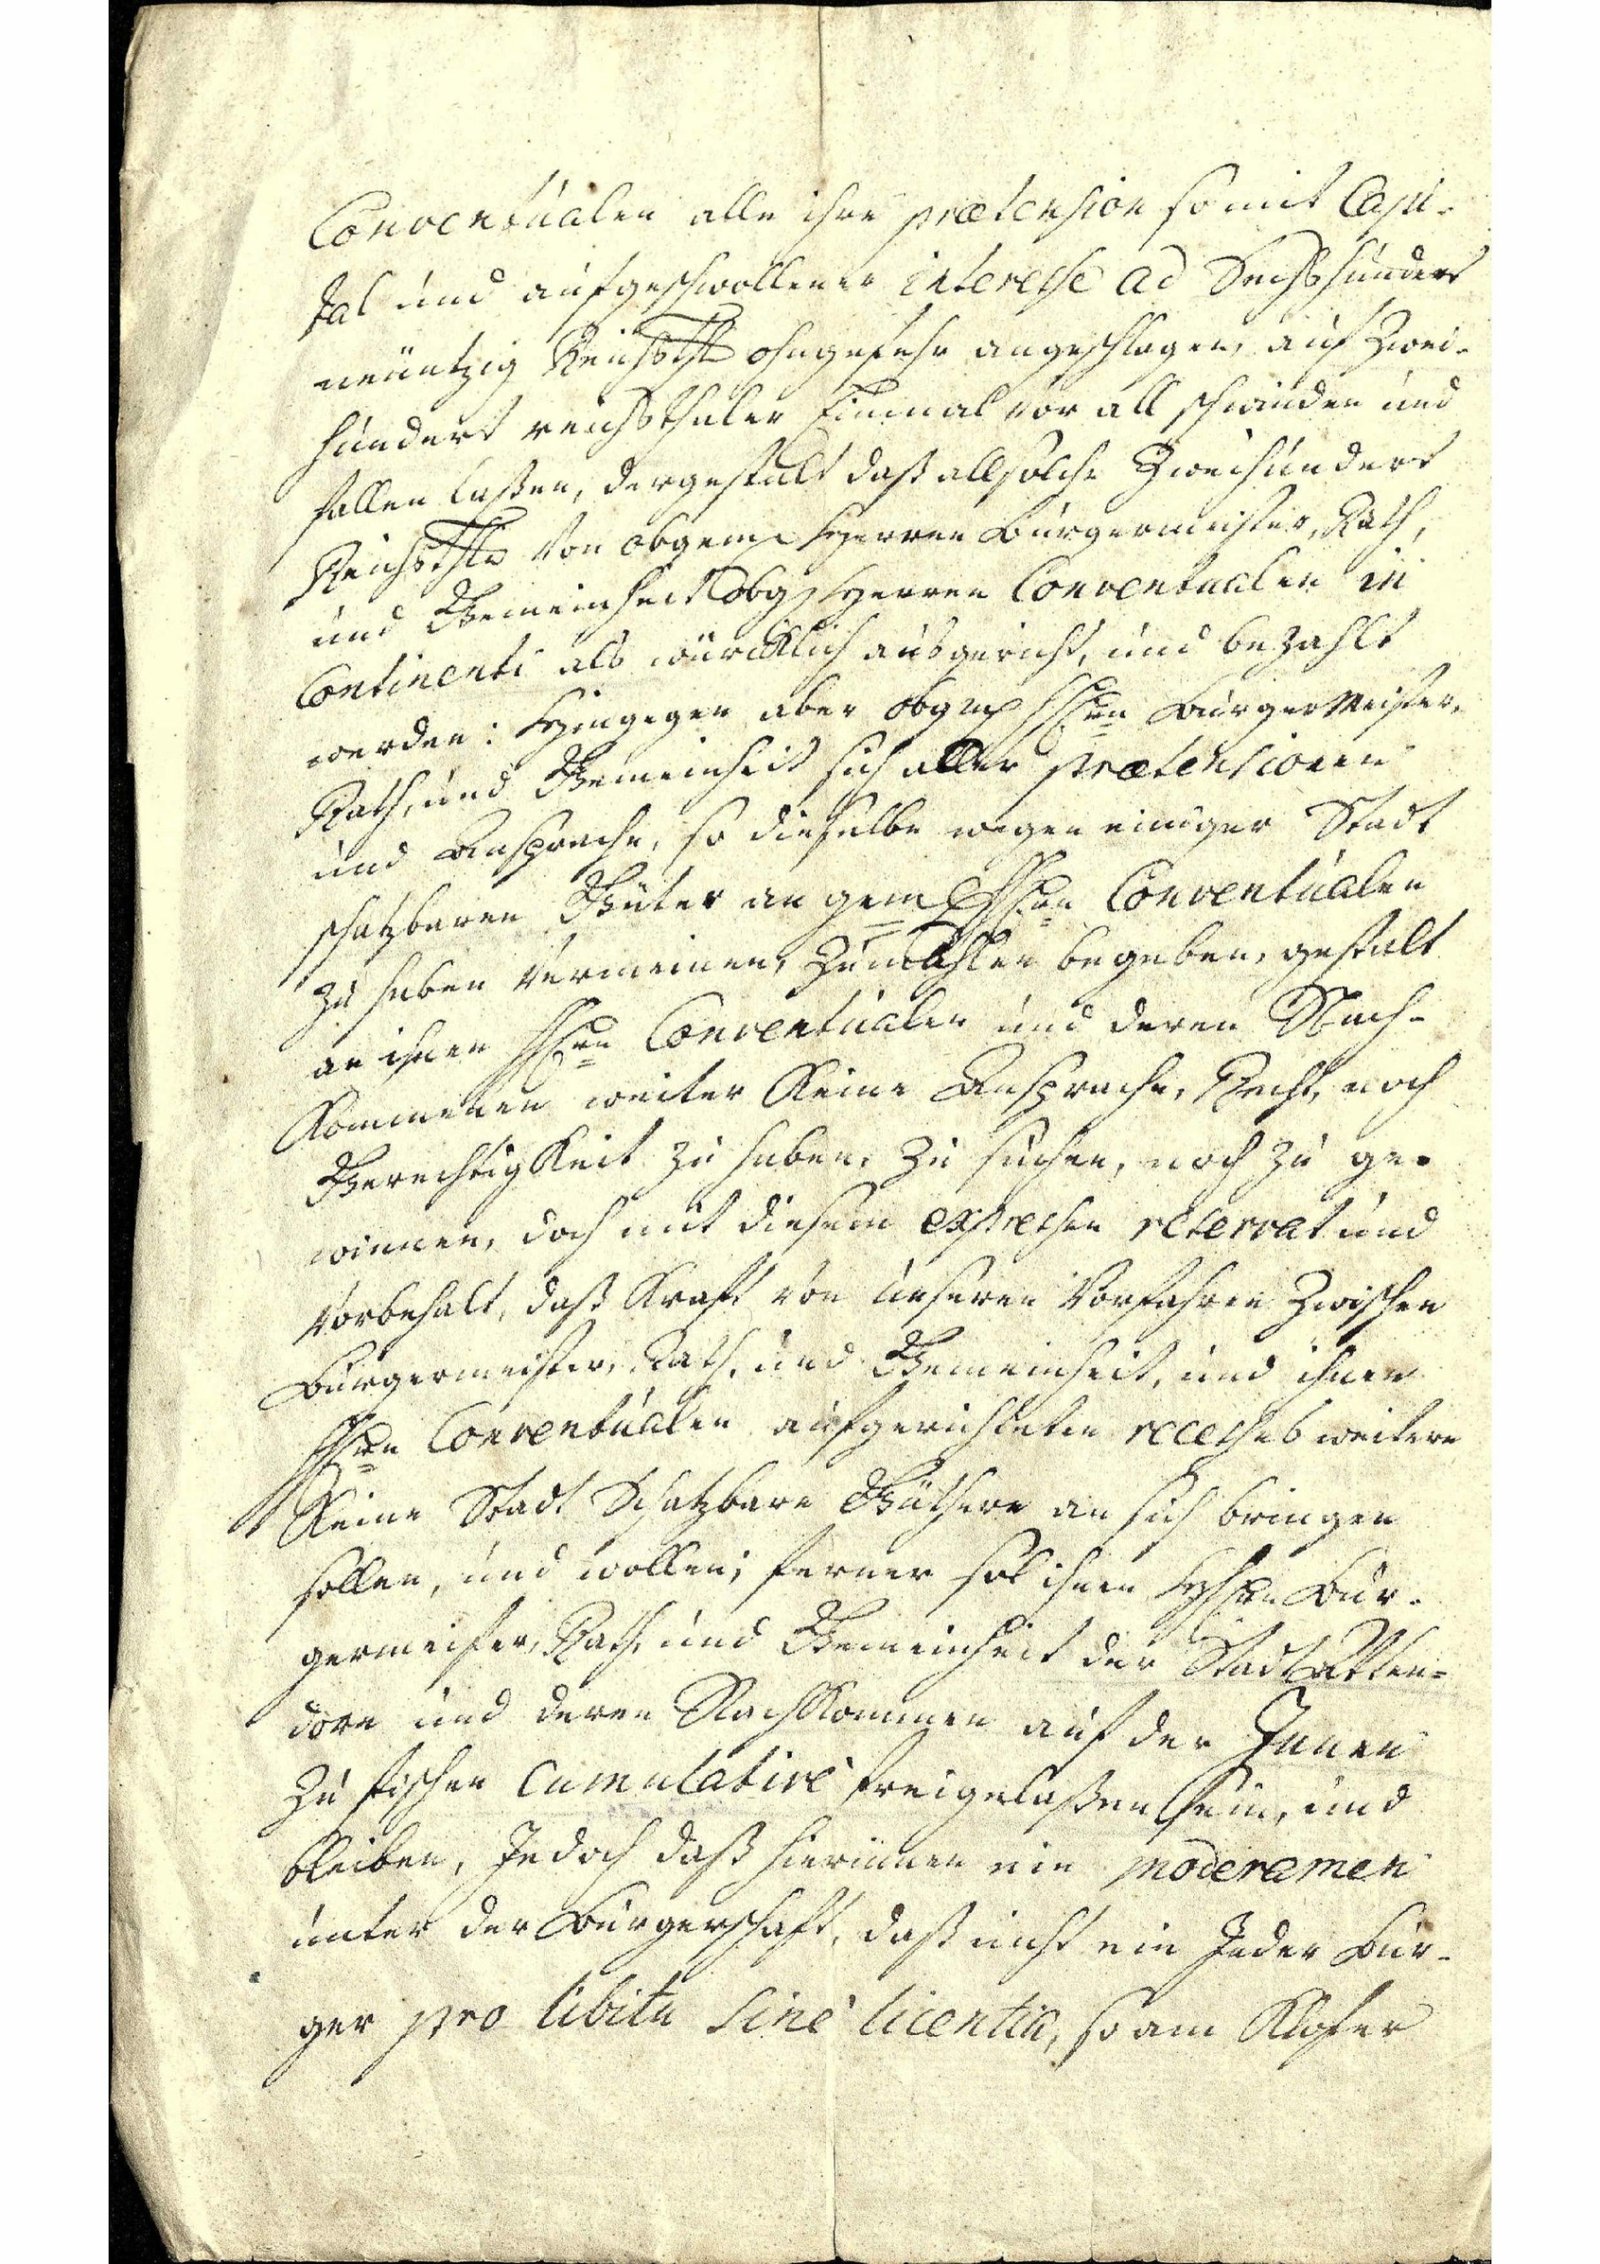 Conventualen alle ihre prætension so mit Capi-
tal und aufgeschwollener interesse ad Sechshundert
neuntzig Reichsthlr ohngefehr angeschlagen, auf Zwei-
hundert reichsthaler Einmal vor all schwinden und
fallen laßen, dergestalt daß allsolche Zweihundert
Reichsthlr von obgem. Herren Bürgermeister, Rath,
und Gemeinheit obg. Herren Conventualen in
Continenti als würcklich ausgericht, und bezahlt
werden: Hingegen aber obgem. HHrn BürgerMeister,
Rath, und Gemeinheit sich aller prætensionen
und Ansprache, so dieselbe wegen einiger Stadt
schatzbaren Güter an gem. HHrn Conventualen
zu haben vermeinen, zumahlen begeben, gestalt
an ihnen HHrn Conventualen und deren Nach-
Kommenen weiter Keine Ansprache, Recht, noch
GerechtigKeit zu haben, zu suchen, noch zu ge-
winnen, doch mit diesem expressen reservat und
Vorbehalt, daß Kraft von unseren Vorfahren zwischen
Bürgermeister, Rath, und Gemeinheit, und ihnen
HHrn Conventualen aufgerichteten recesses weitere
Keine Stadt Schatzbare Güthere an sich bringen
sollen, und wollen; ferner sol ihnen HHrn Bür-
germeister, Rath, und Gemeinheit der Stadt Atten-
dorn und deren NachKommen auf der
zu fischen cumulative freigelaßen sein, und
bleiben, Jedoch daß hierinnen ein moderamen
unter der Bürgerschaft, daß nicht ein Jeder Bür-
ger pro libitu sine licentia, so am